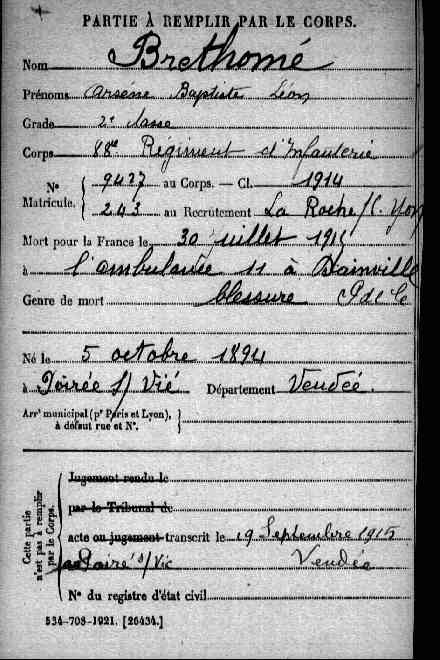 PARTIE À REMPLIR PAR LE CORPS.
Nom Brethomé
Prénoms Arsène Baptiste Léon
Grade 2e classe
Corps 88e Régiment d'Infanterie
N° Matricule. { 9427 au Corps. — Cl. 1914
243 au Recrutement La Roche s/ Yon
Mort pour la France le 30 juillet 1915
à l'ambulance 11 à Dainville
Genre de mort blessure P de C
Né le 5 octobre 1894
à Poirée s/ Vié Département Vendée.
Arr' municipal (pr Paris et Lyon), }
à défaut rue et N°.
Cette partie n'est pas à remplir par le Corps.
Jugement rendu le
par le Tribunal de
acte ou jugement transcrit le 19 Septembre 1915
Poiré s/Vic Vendée
N° du registre d'état civil
534-708-1921. [26434.]